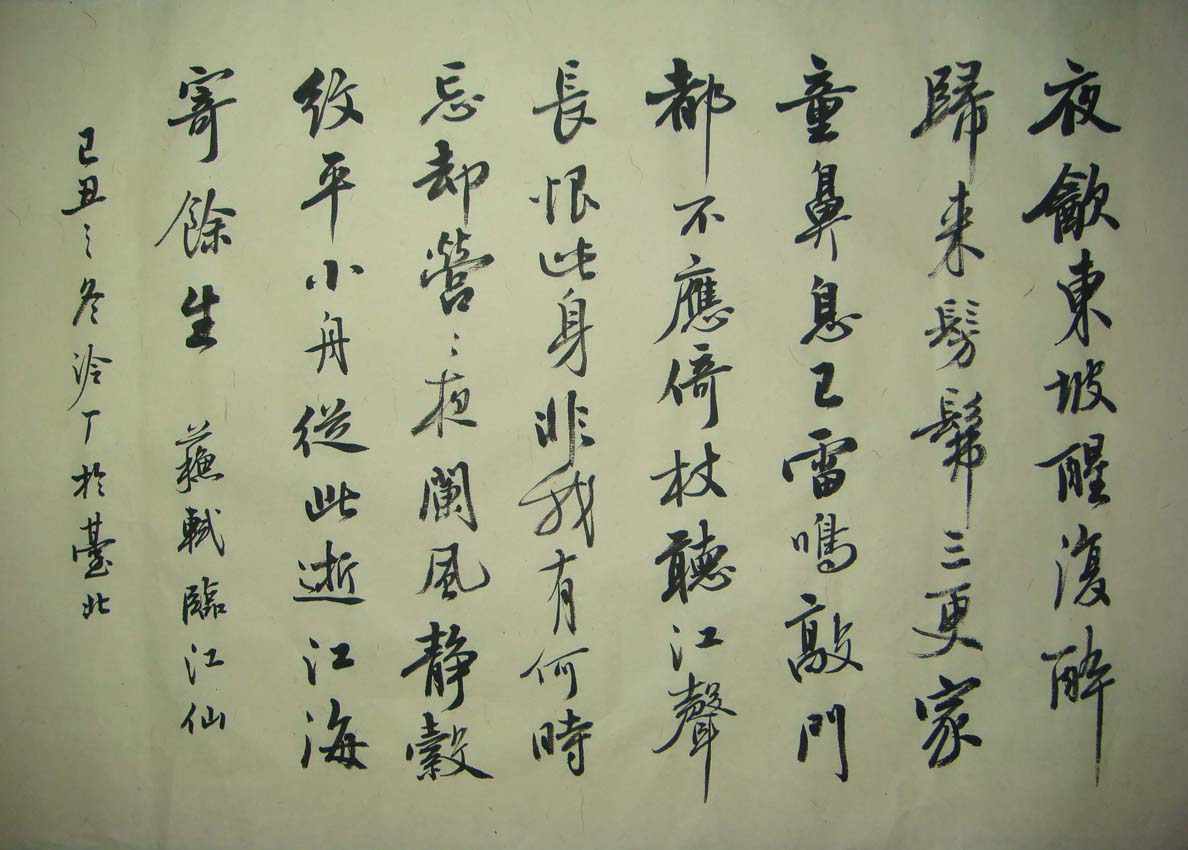 夜飲東坡醒復醉
歸来髣髴三更家
童鼻息已雷鳴敲門
都不應倚杖聽江聲
長恨此身非我有何時
忘却營〻夜闌風静縠
紋平小舟從此逝江海
寄餘生 蘇軾臨江仙
己丑之冬泠丁於臺北